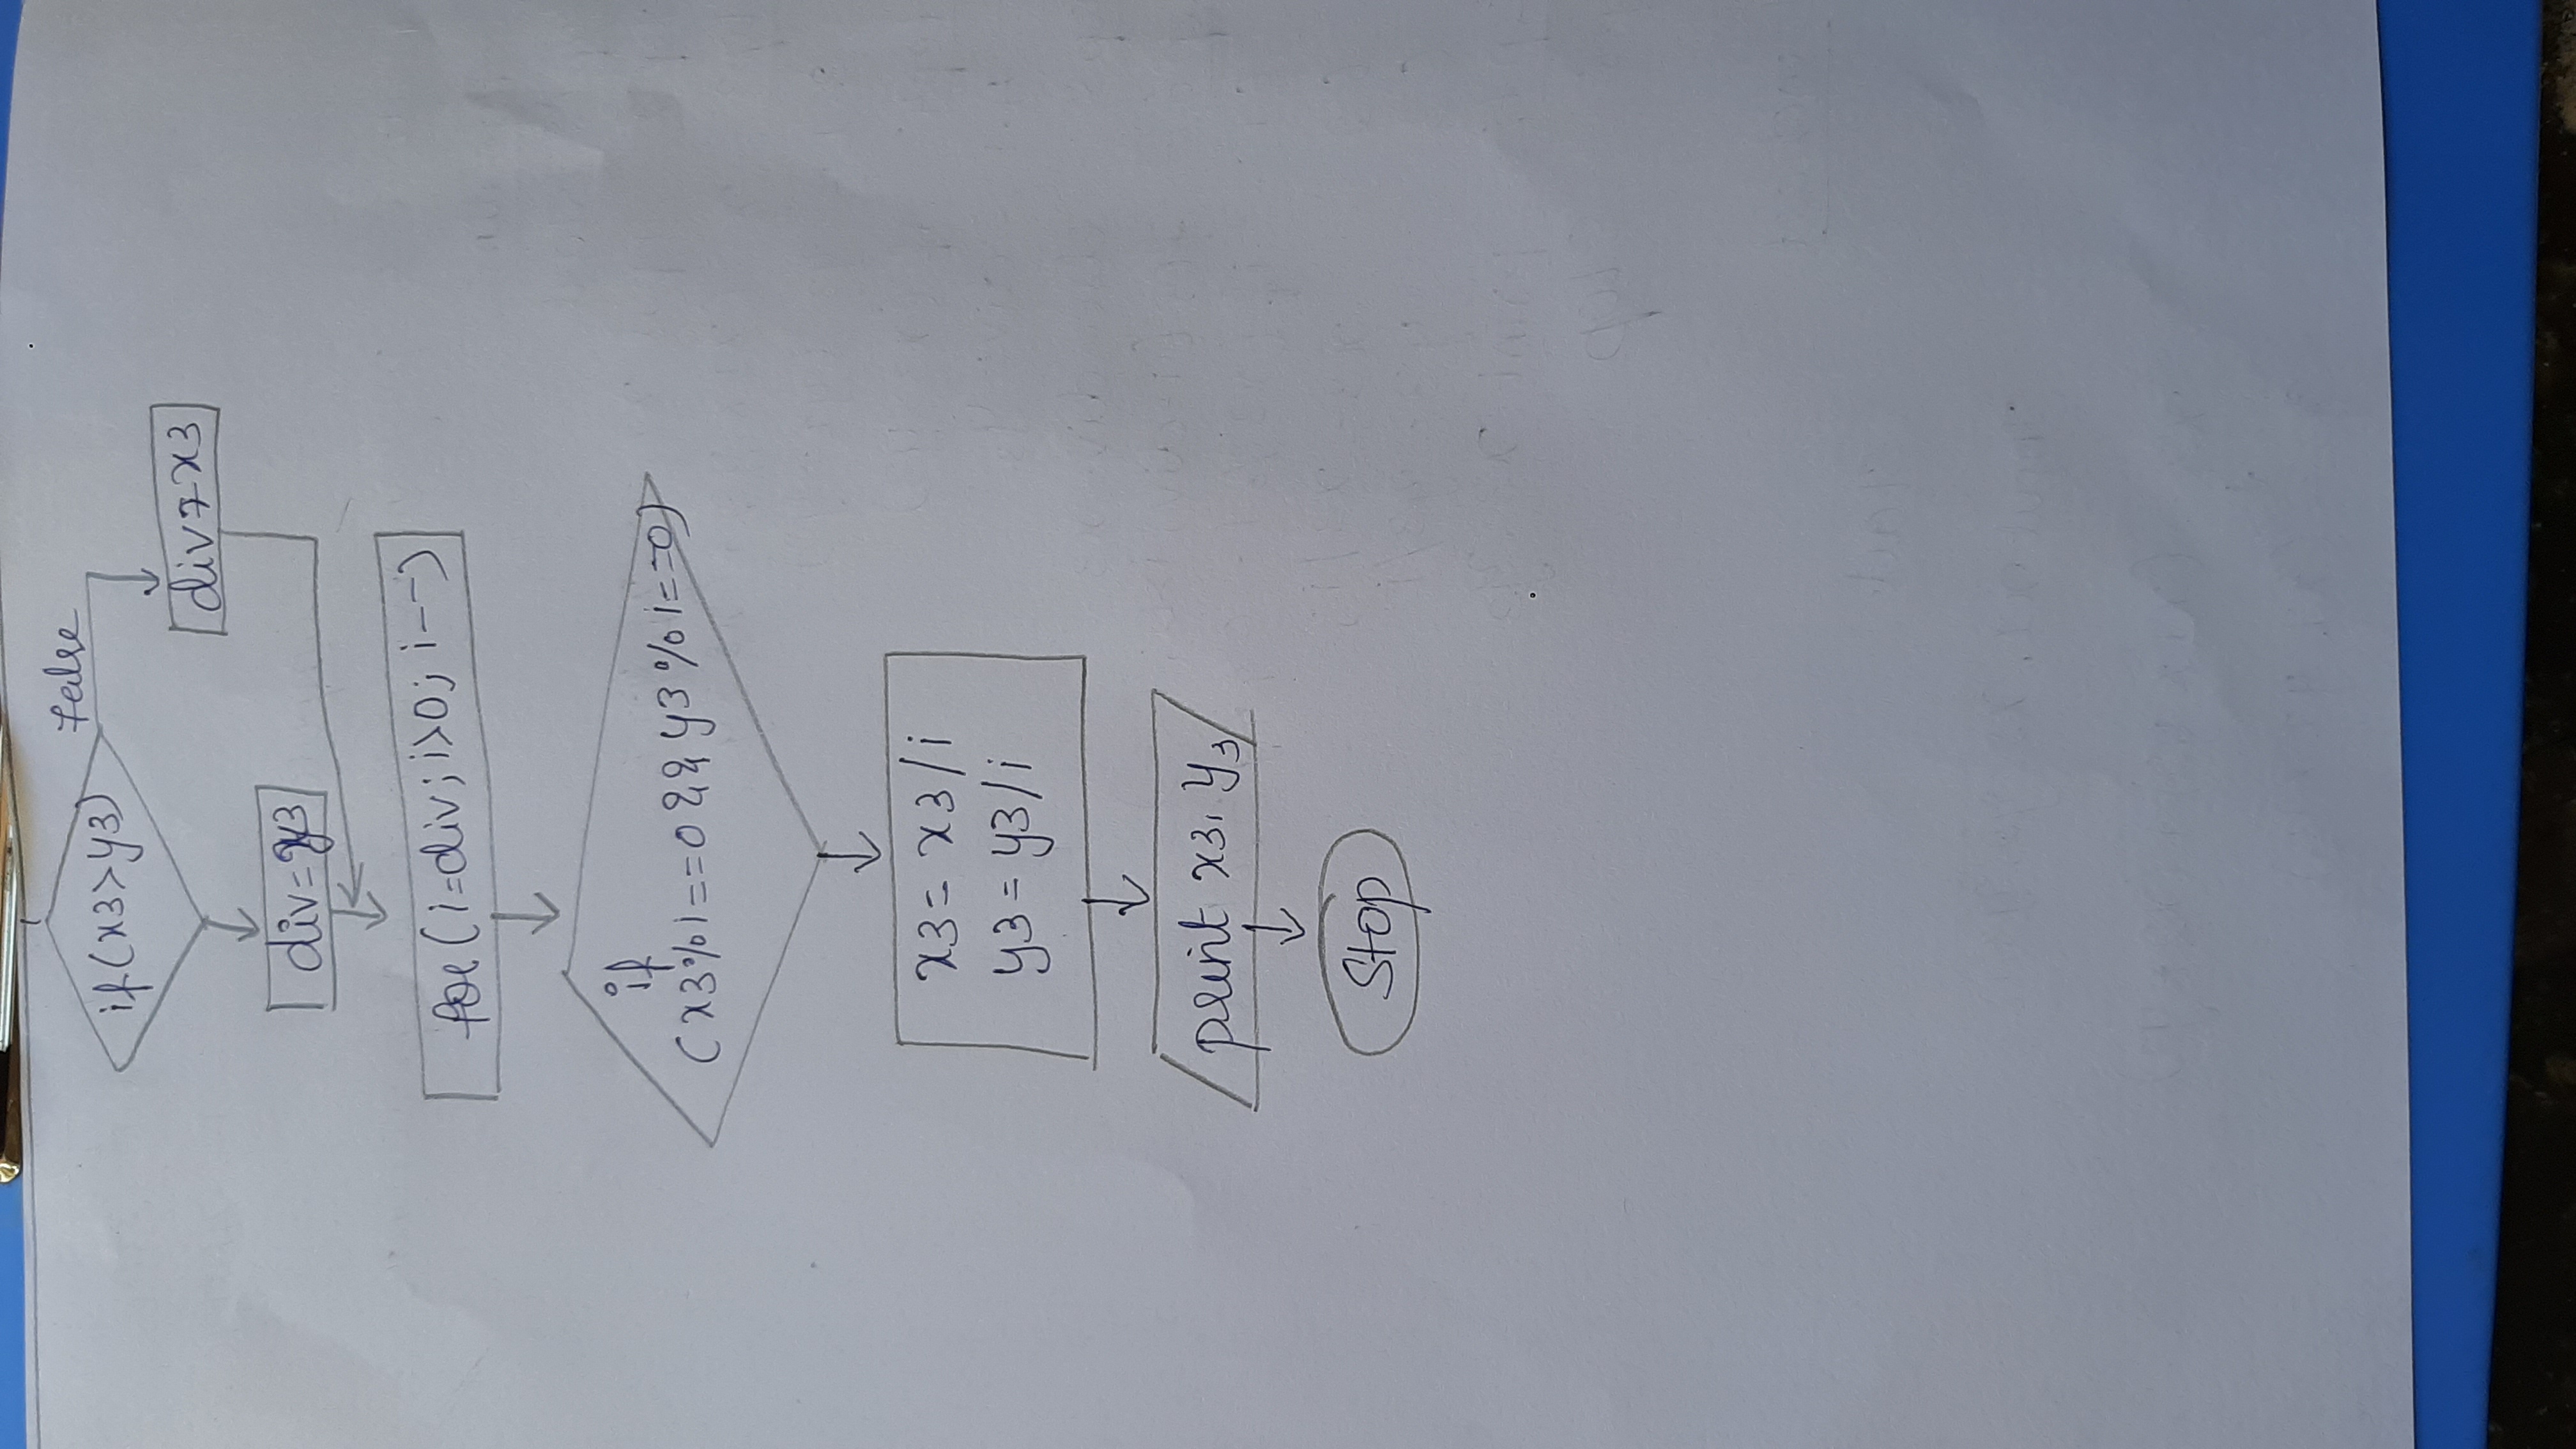 if(x3>y3)
False
div=x3
div=y3
for(i=div;i>0;i--)
if
(x3%i==0&&y3%i==0)
x3=x3/i
y3=y3/i
print x3, y3
Stop